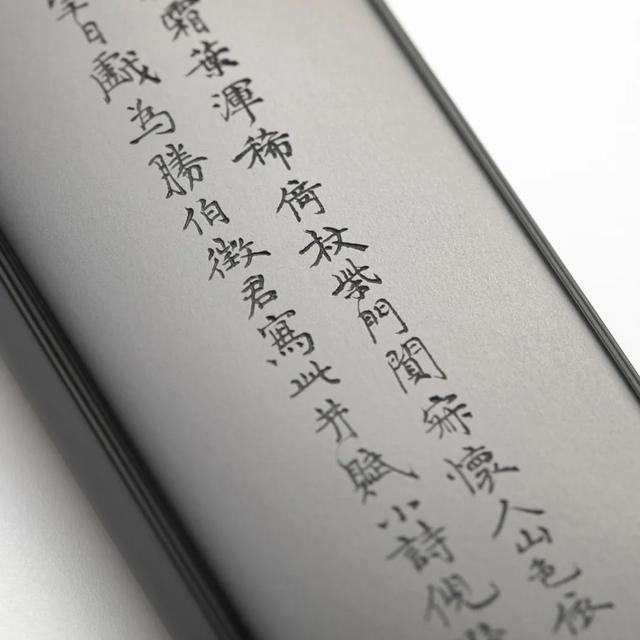 霜葉渾稀倚杖柴門闃寂懷人山色依
日戲為勝伯徵君寫此并賦小詩倪